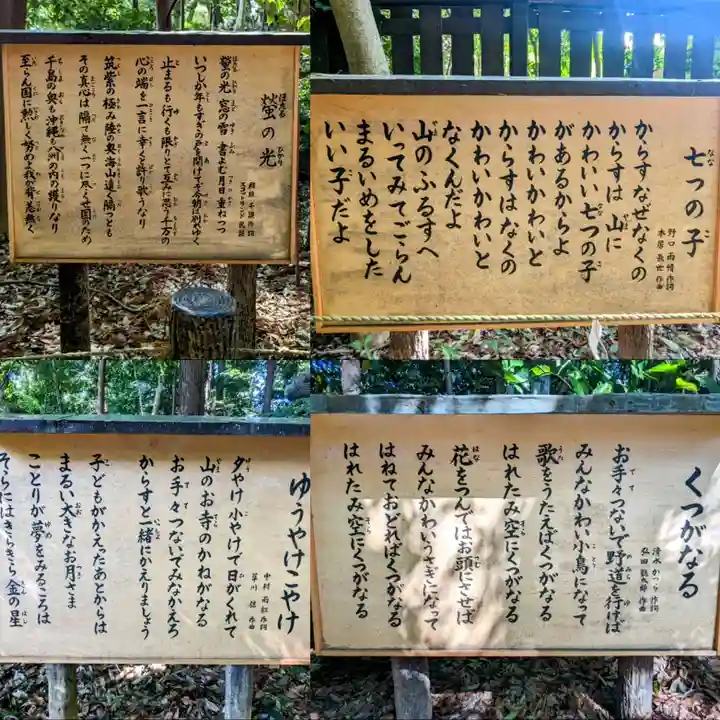 螢の光
ほたる
ひかり
稲垣 千頴 作詞
スコットランド 民謡
螢の光 窓の雪 書よむ月日 重ねつつ
いつしか年もすぎの戸を開けてぞ今朝は別れゆく
止まるも行くも限りとて互みに思う千万の
心の端を一言に幸くと許り歌うなり
筑紫の極み陸の奥海山遠く隔つとも
その真心は隔て無く一つに尽くせ国のため
千島の奥も沖縄も八洲の内の護りなり
至らん国に勲しく努めよ我が背恙無く
七つの子
なな
野口 雨情 作詞
本居 長世 作曲
からすなぜなくの
からすは山に
かわいい七つの子
があるからよ
かわいかわいと
からすはなくの
かわいかわいと
なくんだよ
山のふるすへ
いってみてごらん
まるいめをした
いい子だよ
ゆうやけこやけ
中村 雨紅 作詞
草川 信 作曲
夕やけ小やけで日がくれて
山のお寺のかねがなる
お手々つないでみなかえろ
からすと一緒にかえりましょう
子どもがかえったあとからは
まるい大きなお月さま
ことりが夢をみるころは
そらにはきらきら金の星
くつがなる
清水 かつら 作詞
弘田 龍太郎 作曲
お手々つないで野道を行けば
みんなかわい小鳥になって
歌をうたえばくつがなる
はれたみ空にくつがなる
花をつんではお頭にさせば
みんなかわいうさぎになって
はねておどればくつがなる
はれたみ空にくつがなる